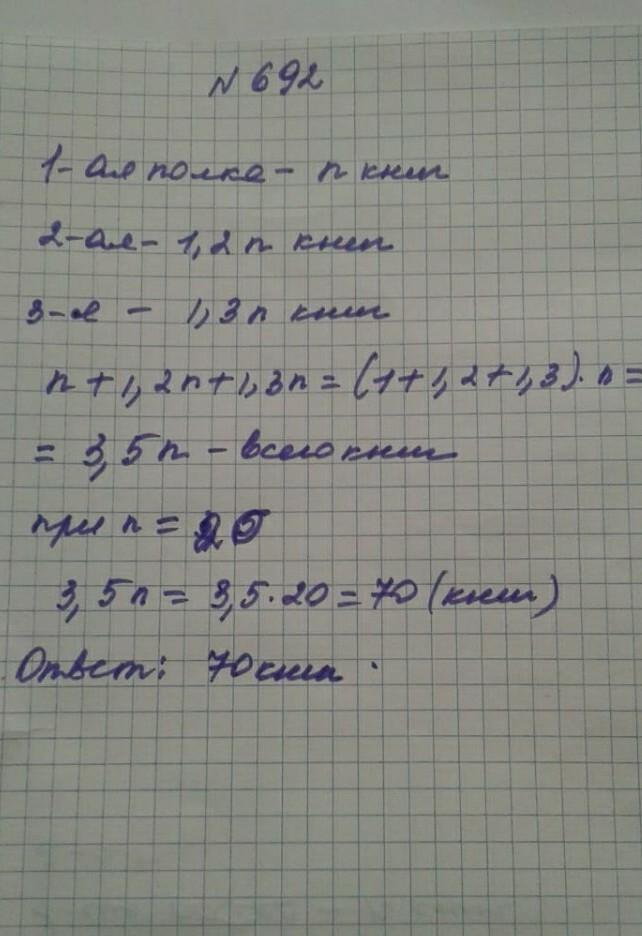 N 692
1-ая полка - n книг
2-ая - 1,2n книг
3-я - 1,3n книг
n + 1,2n + 1,3n = (1 + 1,2 + 1,3) · n =
= 3,5n - всего книг
при n = 20
3,5n = 3,5 · 20 = 70 (книг)
Ответ: 70 книг.